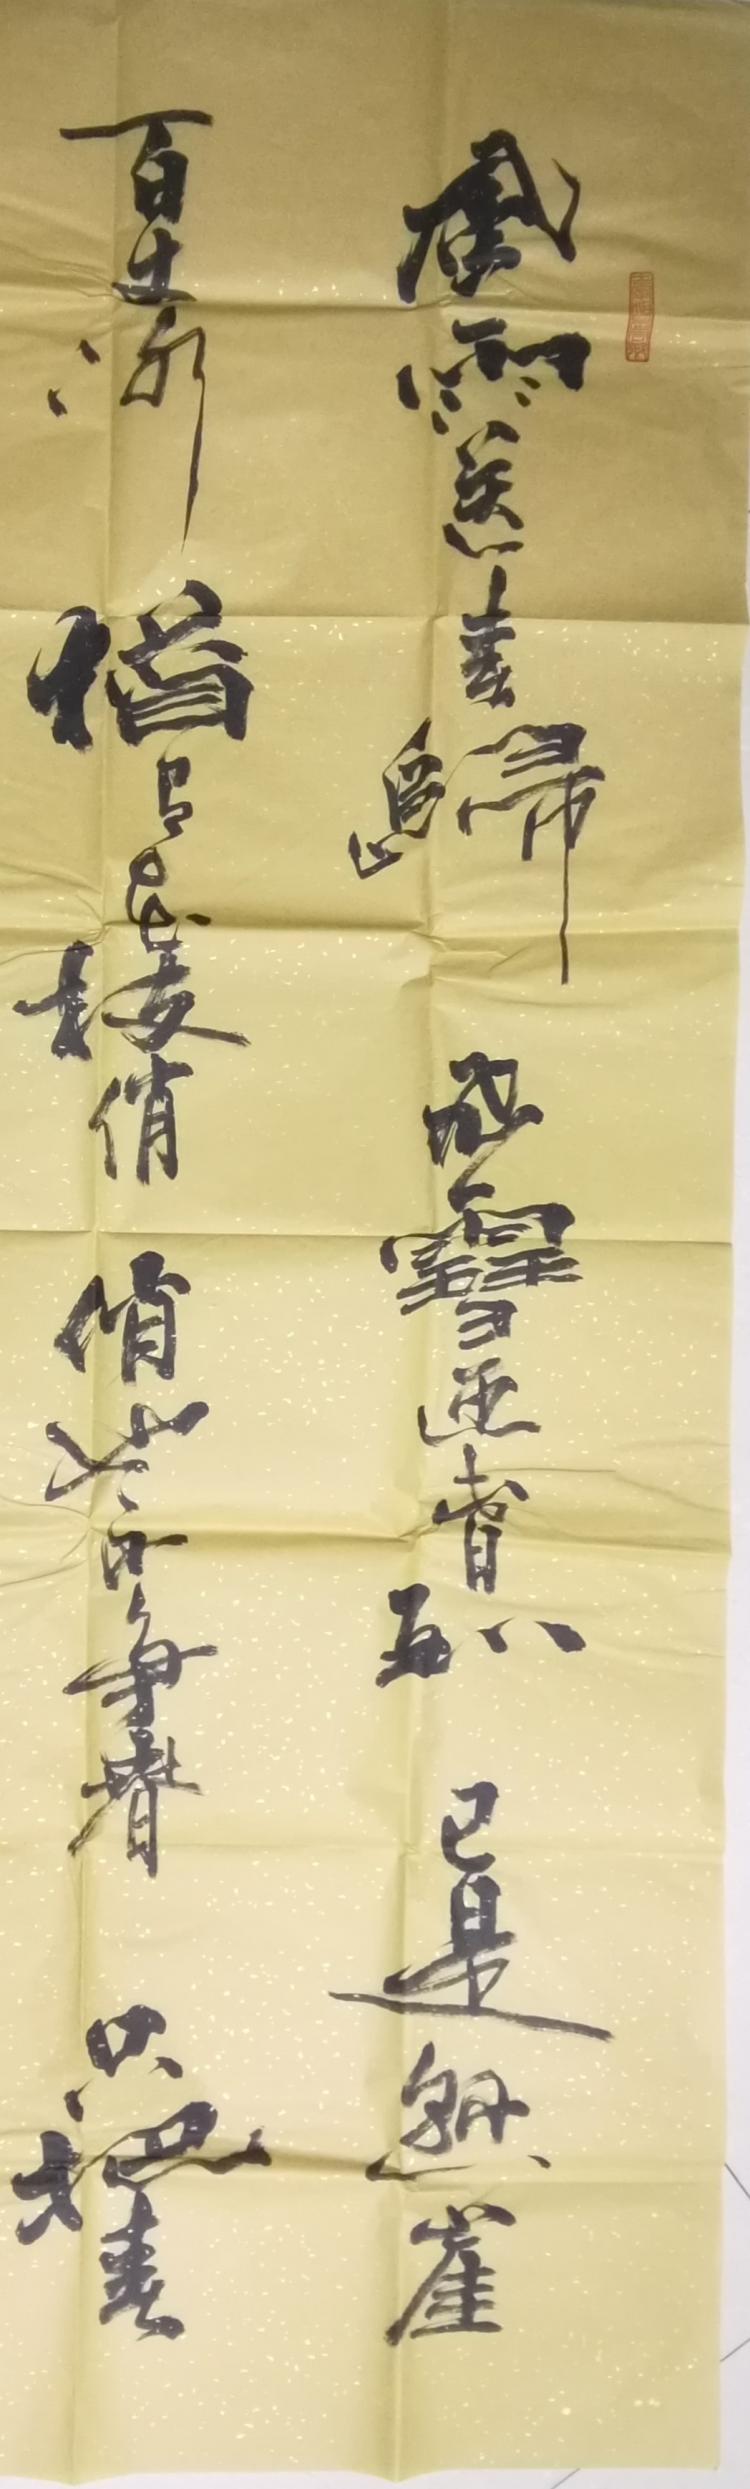 風雨送春歸飛雪迎春到已是懸崖
百丈冰猶有花枝俏俏也不爭春只把春